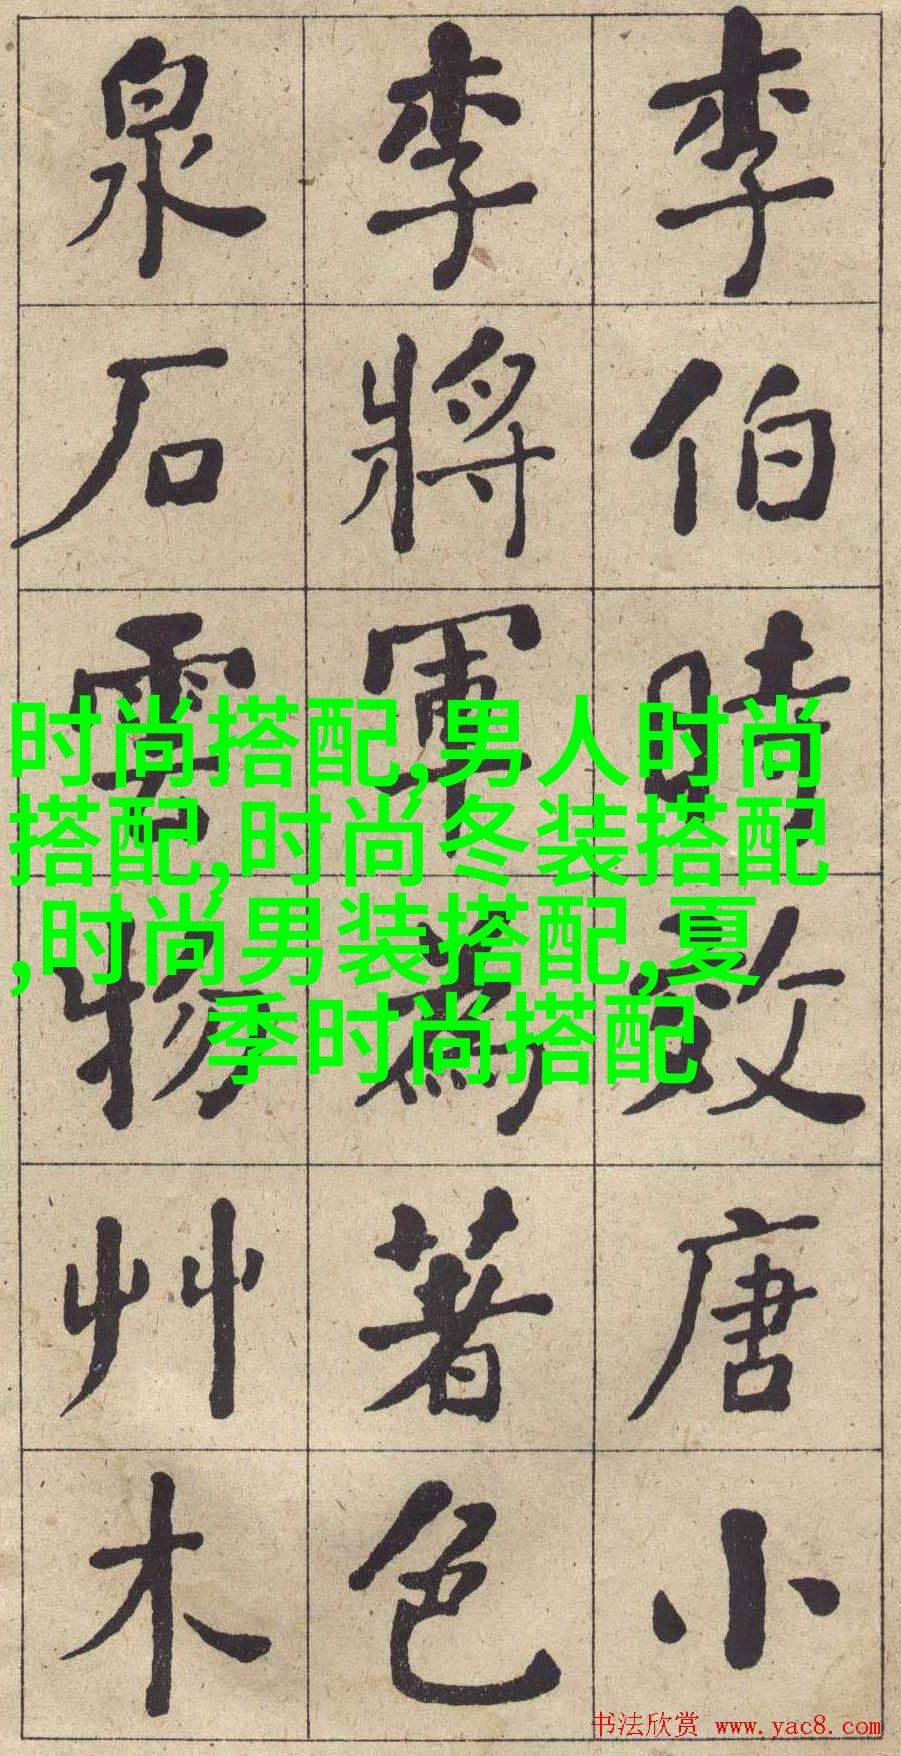 李伯時效唐小
李將軍為著色
泉石雲物艸木
时尚搭配,男人时尚
搭配,时尚冬装搭配
,时尚男装搭配,夏
季时尚搭配
书法欣赏 www.yac8.com